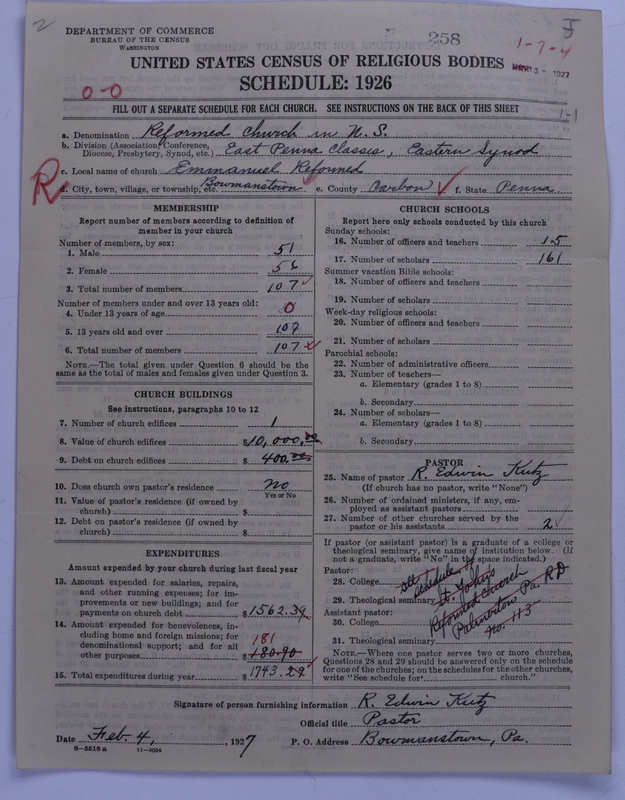 2
DEPARTMENT OF COMMERCE
BUREAU OF THE CENSUS
WASHINGTON
258
1-7-4
UNITED STATES CENSUS OF RELIGIOUS BODIES
1927
SCHEDULE: 1926
0-0
FILL OUT A SEPARATE SCHEDULE FOR EACH CHURCH. SEE INSTRUCTIONS ON THE BACK OF THIS SHEET
1-1
a. Denomination Reformed Church in U.S.
b. Division (Association, Conference,
Diocese, Presbytery, Synod, etc.) East Penna Classis, Eastern Synod
c. Local name of church Emmanuel Reformed
R
d. City, town, village, or township, etc. Bowmanstown e. County Carbon f. State Penna
MEMBERSHIP
Report number of members according to definition of
member in your church
Number of members, by sex:
1. Male 51
2. Female 56
3. Total number of members 107
Number of members under and over 13 years old:
4. Under 13 years of age 0
5. 13 years old and over 107
6. Total number of members 107
NOTE.—The total given under Question 6 should be the
same as the total of males and females given under Question 3.
CHURCH BUILDINGS
See instructions, paragraphs 10 to 12
7. Number of church edifices 1
8. Value of church edifices $10,000.00
9. Debt on church edifices $400.00
10. Does church own pastor's residence No
Yes or No
11. Value of pastor's residence (if owned by
church) $
12. Debt on pastor's residence (if owned by
church) $
EXPENDITURES
Amount expended by your church during last fiscal year
13. Amount expended for salaries, repairs,
and other running expenses; for im-
provements or new buildings; and for
payments on church debt $1562.39
14. Amount expended for benevolences, in-
cluding home and foreign missions; for
denominational support; and for all 181
other purposes $180.90
15. Total expenditures during year $1743.29
CHURCH SCHOOLS
Report here only schools conducted by this church
Sunday schools:
16. Number of officers and teachers 15
17. Number of scholars 161
Summer vacation Bible schools:
18. Number of officers and teachers
19. Number of scholars
Week-day religious schools:
20. Number of officers and teachers
21. Number of scholars
Parochial schools:
22. Number of administrative officers
23. Number of teachers—
a. Elementary (grades 1 to 8)
b. Secondary
24. Number of scholars—
a. Elementary (grades 1 to 8)
b. Secondary
PASTOR
25. Name of pastor R. Edwin Kutz
(If church has no pastor, write "None")
26. Number of ordained ministers, if any, em-
ployed as assistant pastors
27. Number of other churches served by the
pastor or his assistants 2
If pastor (or assistant pastor) is a graduate of a college or
theological seminary, give name of institution below. (If
not a graduate, write "No" in the space indicated.)
Pastor:
28. College
schedule of
29. Theological seminary St. John's
Reformed Church
Assistant pastor:
Palmerton Pa. RD
30. College
No. 113
31. Theological seminary
NOTE.—Where one pastor serves two or more churches,
Questions 28 and 29 should be answered only on the schedule
for one of the churches; on the schedules for the other churches,
write "See schedule for church."
Signature of person furnishing information R. Edwin Kutz
Official title Pastor
Date Feb. 4, 1927 P. O. Address Bowmanstown, Pa.
8—5518a 11—9054